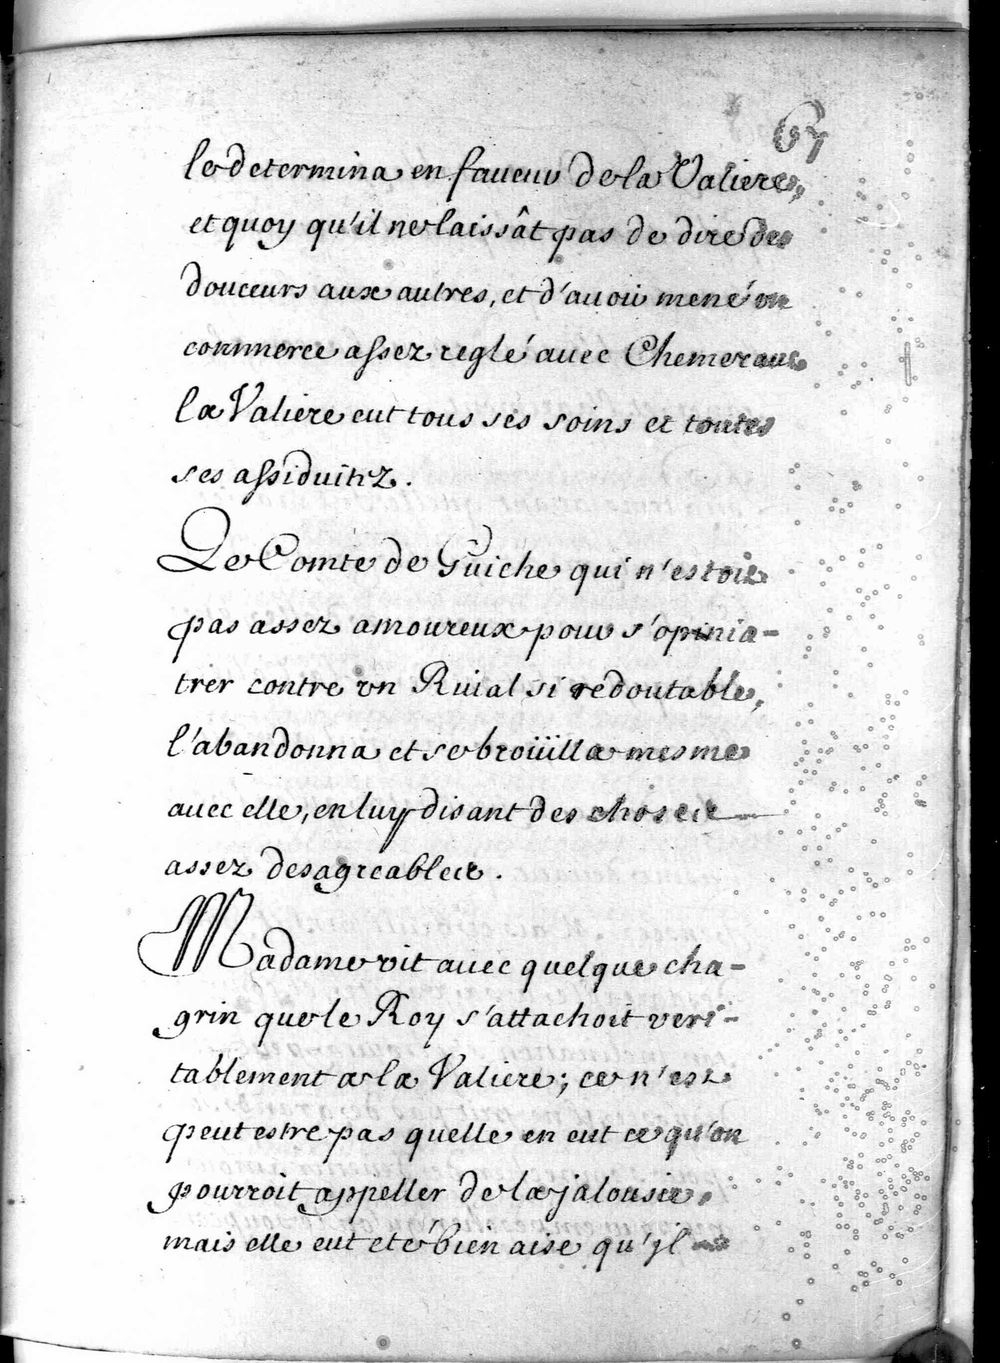 67
le determina en faueur de la Valiere,
et quoy qu'il ne laissât pas de dire des
douceurs aux autres, et d'auoir mené vn
commerce assez reglé auec Chemeraut
la Valiere eut tous ses soins et toutes
ses assiduitez.
Le Comte de Guiche qui n'estoit
pas assez amoureux pour s'opinia-
trer contre vn Riual si redoutable,
l'abandonna et se broüilla mesme
auec elle, en luy disant des choses
assez desagreables.
Madame vit auec quelque cha-
grin que le Roy s'attachoit veri-
tablement a la Valiere; ce n'est
peut estre pas quelle en eut ce qu'on
pourroit appeller de la jalousie,
mais elle eut eté bien aise qu'jl